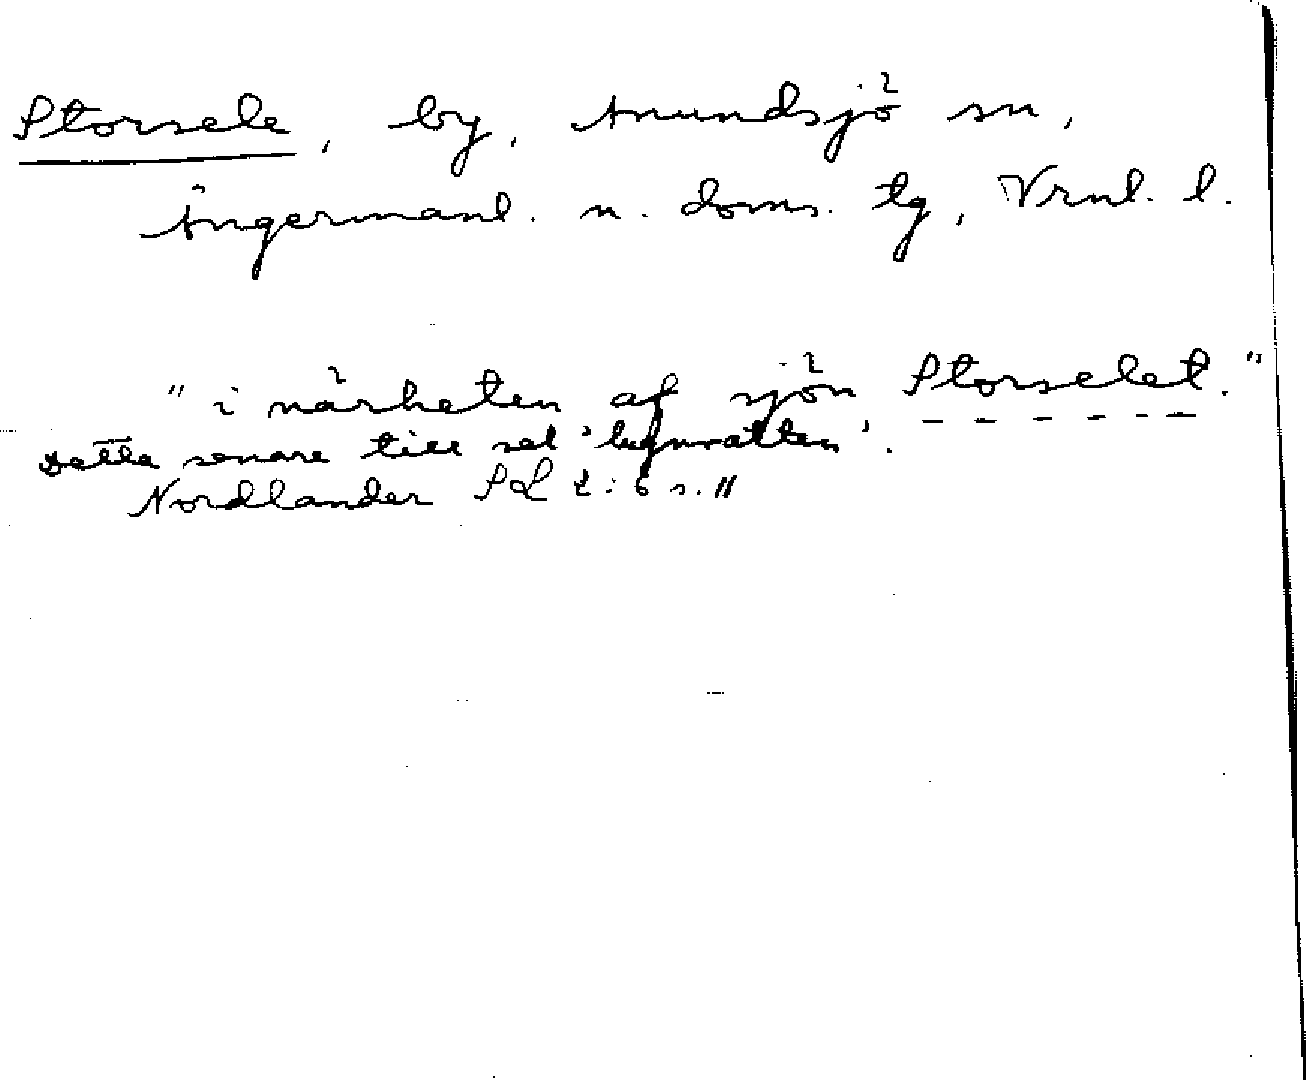 Storsele, by, Anundsjö sn,
Ångermanl. n. doms. tg, Vrnl. l.
"i närheten af sjön Storselet."
Detta senare till sel 'lugnvatten'.
Nordlander SL 2:6 s. 11